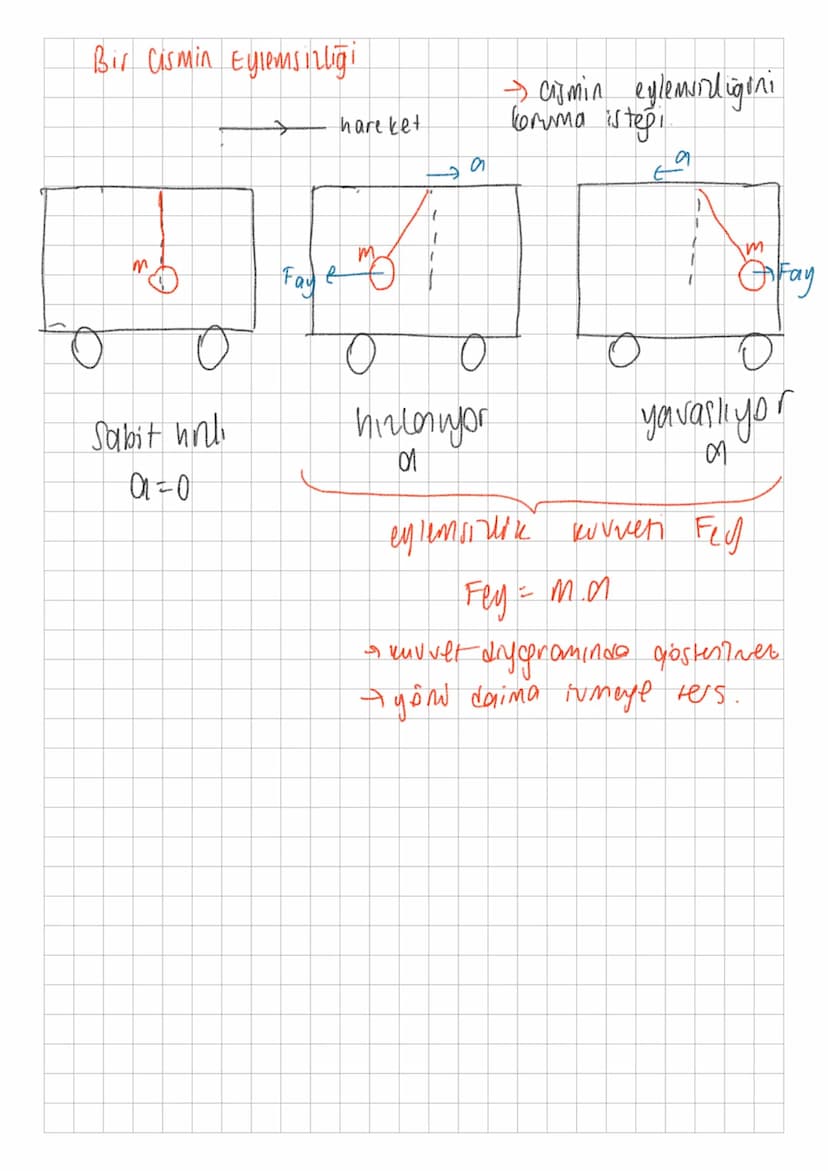 Bir Cismin Eylemsizliği
→ cismin eylemsizliğini
koruma isteği.
hareket
a
a
m
m
m
Fay
Fay
Sabit hızlı
a=0
hızlanıyor
a
yavaşlıyor
a
eylemsizlik kuvveti Fey
Fey = m.a
→ kuvvet diyagramında gösterilmez
→ yönü daima ivmeye ters.